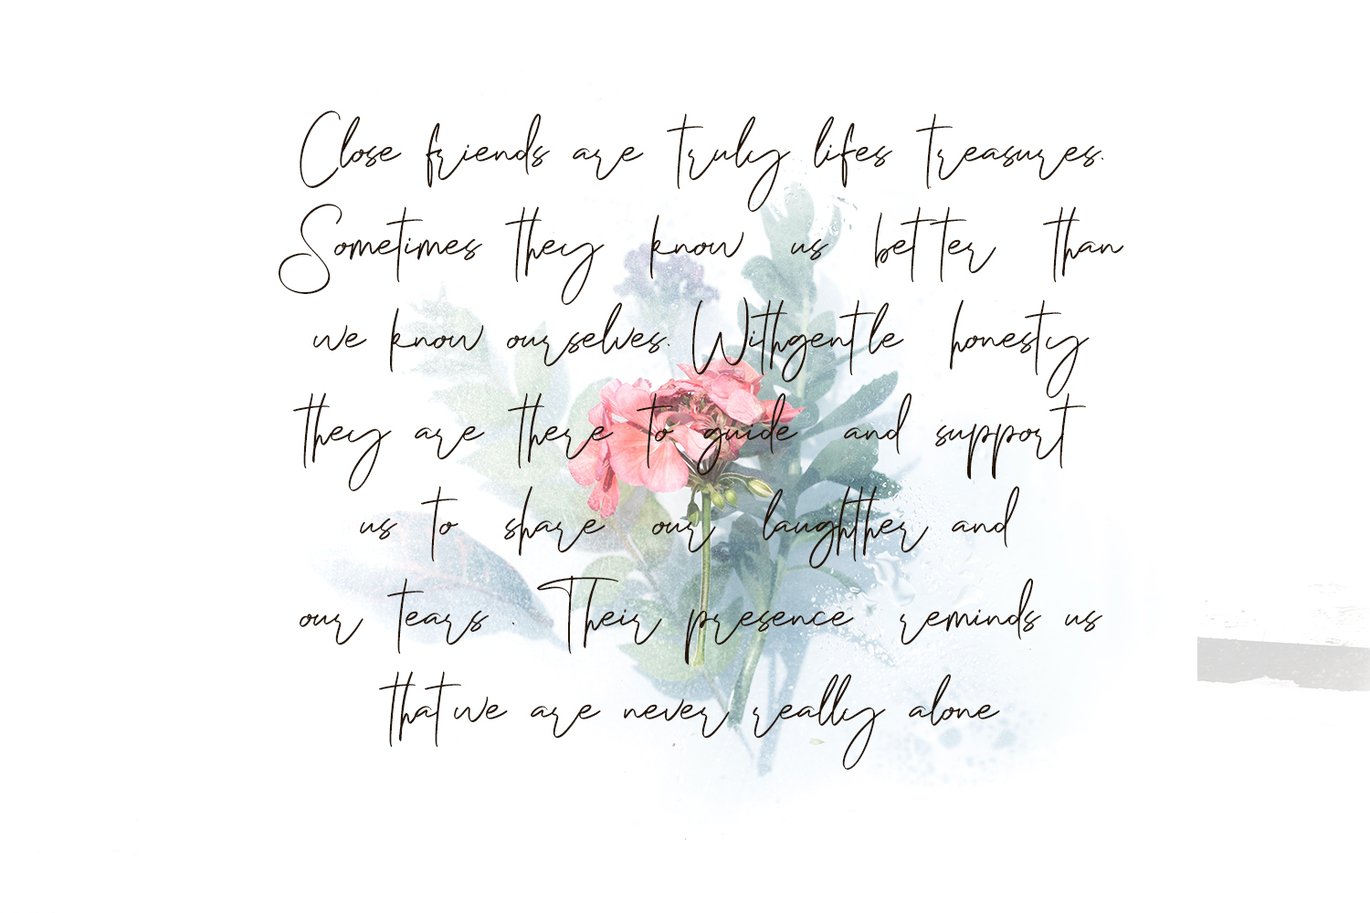 Close friends are truly lifes treasures.
Sometimes they know us better than
we know ourselves. Withgentle honesty
they are there to guide and support
us to share our laughther and
our tears . Their presence reminds us
that we are never really alone